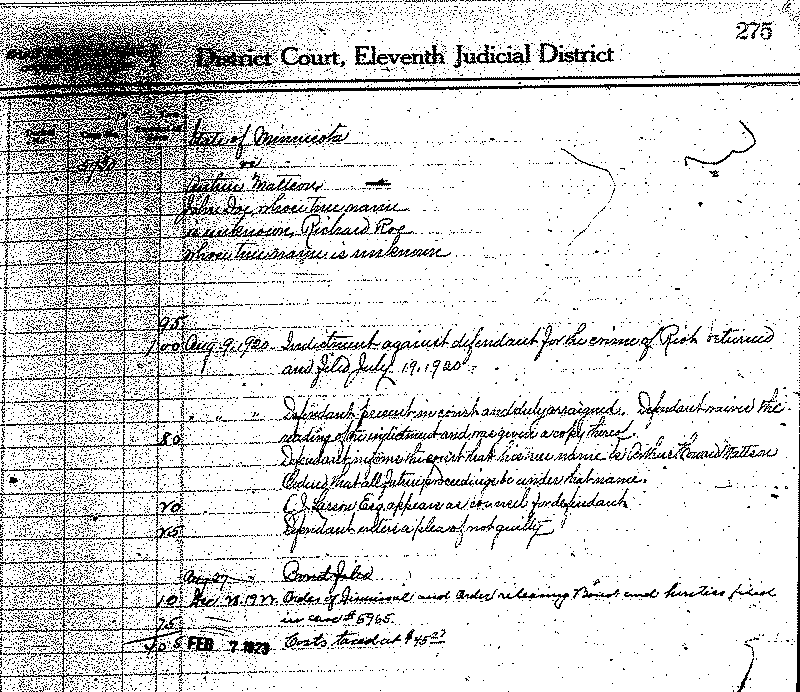 275
District Court, Eleventh Judicial District
State of Minnesota
vs
Arthur Mattson,
John Doe, whose true name
is unknown, Richard Roe
whose true name is unknown
95
1 00 Aug. 9, 1920 Indictment against defendant for the crime of Riot returned
and filed July 19, 1920.
" " " Defendant present in court and duly arraigned. Defendant waived the
80 reading of the indictment and was given a copy thereof.
Defendant informs the court that his true name is Arthur Howard Mattson
Ordered that all future proceedings be under that name.
20 Larson Esq. appears as counsel for defendant.
25 Defendant enters a plea of not guilty
Aug 27 " Bond filed
10 Dec 28, 1922 Order of Dismissal and order releasing Bond and Sureties filed
75 in case # 5965.
4 05 FEB 7 1923 Costs taxed at $